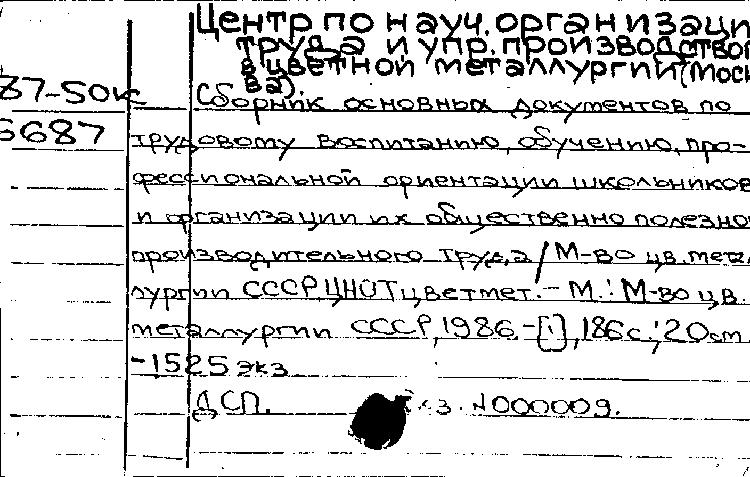 Центр по науч. организаци
труда и упр. производством
в цветной металлургии (Моск
ва).
87-50к
6687
Сборник основных документов по
трудовому воспитанию, обучению, про-
фессиональной ориентации школьников
и организации их общественно полезно
производительного труда / М-во цв. метал
лургии СССР, ЦНОТцветмет. - М.: М-во цв.
металлургии СССР, 1986. - [1], 186 с.; 20 см
- 1525 экз.
ДСП. экз. N000009.